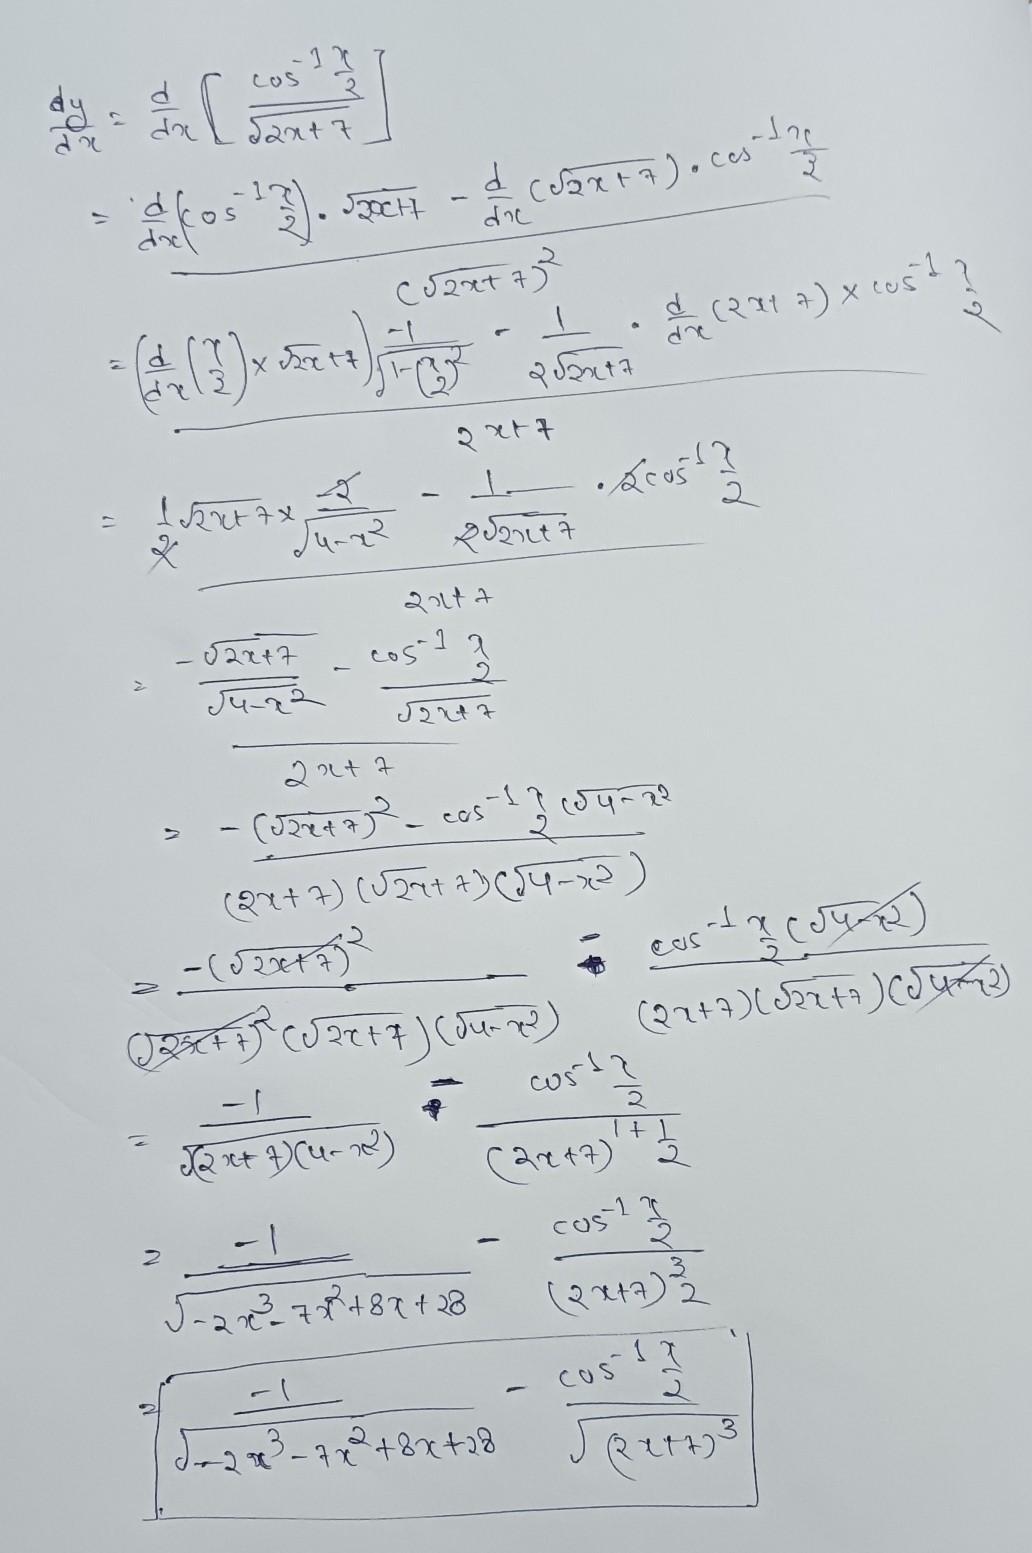 dy/dx = d/dx [ cos⁻¹ x/2 / √(2x+7) ]
= d/dx (cos⁻¹ x/2) . √(2x+7) - d/dx (√(2x+7)) . cos⁻¹ x/2 / (√(2x+7))²
= (d/dx (x/2) × √(2x+7)) -1/√(1-(x/2)²) - 1/(2√(2x+7)) . d/dx (2x+7) × cos⁻¹ x/2 / 2x+7
= 1/2 √(2x+7) × -2/√(4-x²) - 1/(2√(2x+7)) . 2 cos⁻¹ x/2 / 2x+7
= -√(2x+7)/√(4-x²) - cos⁻¹ x/2 / √(2x+7) / 2x+7
= -(√(2x+7))² - cos⁻¹ x/2 (√(4-x²) / (2x+7)(√(2x+7))(√(4-x²))
= -(√(2x+7))² / (√(2x+7))² (√(2x+7))(√(4-x²)) - cos⁻¹ x/2 (√(4-x²)) / (2x+7)(√(2x+7))(√(4-x²))
= -1/√((2x+7)(4-x²)) - cos⁻¹ x/2 / (2x+7)^(1+1/2)
= -1/√(-2x³-7x²+8x+28) - cos⁻¹ x/2 / (2x+7)^(3/2)
= -1/√(-2x³-7x²+8x+28) - cos⁻¹ x/2 / √((2x+7)³)